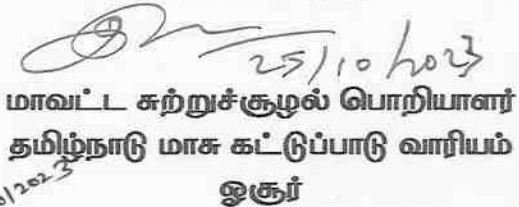 25/10/2023
மாவட்ட சுற்றுச்சூழல் பொறியாளர்
தமிழ்நாடு மாசு கட்டுப்பாடு வாரியம்
ஓசூர்